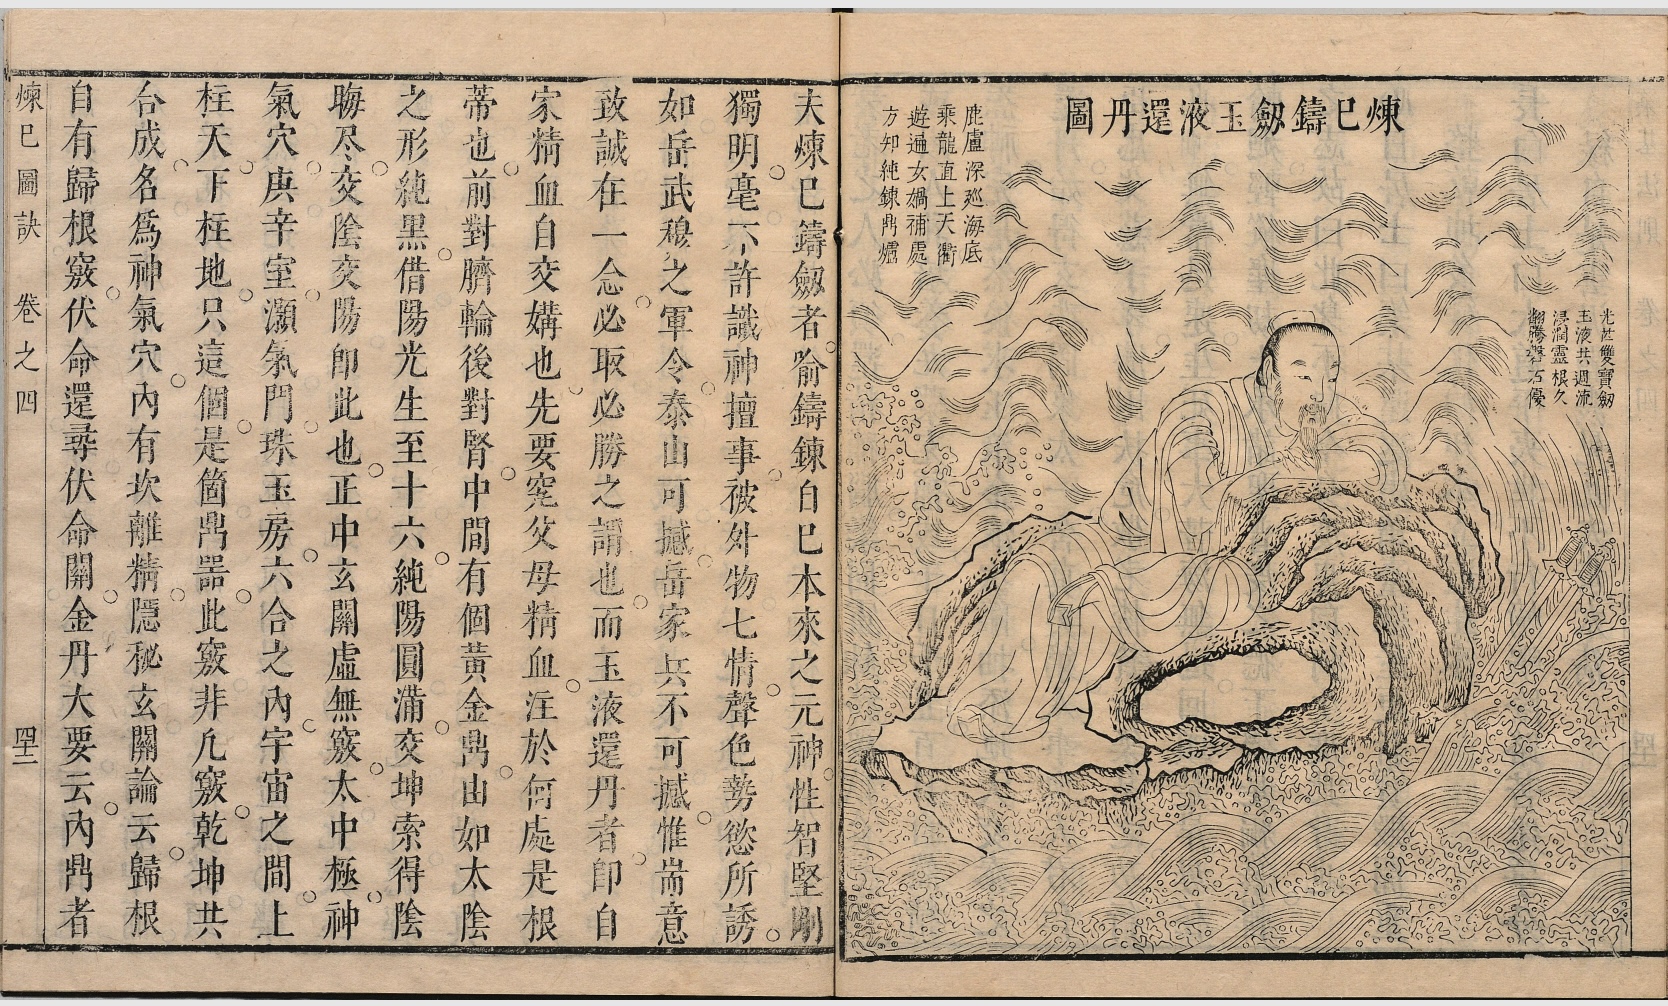 煉巳鑄劒玉液還丹圖
鹿盧深廵海底
乘龍直上天衢
遊遍女媧補處
方知純鍊鼎爐
光芒雙寶劒
玉液共週流
浸潤靈根久
翻騰聲巧優
夫煉巳鑄劒者喻鑄鍊自巳本來之元神性智堅剛
獨明毫不許識神擅事被外物七情聲色勢慾所誘
如岳武穆之軍令泰山可撼岳家兵不可撼惟耑意
致誠在一念必取必勝之謂也而玉液還丹者卽自
家精血自交媾也先要究父母精血注於何處是根
蒂也前對臍輪後對腎中間有個黃金鼎山如太陰
之形純黑借陽光生至十六純陽圓滿交坤索得陰
晦尽交陰交陽卽此也正中玄關虛無竅太中極神
氣穴庚辛室灝氣門珠玉房六合之內宇宙之間上
柱天下柱地只這個是箇鼎器此竅非凢竅乾坤共
合成名爲神氣穴內有坎離精隱秘玄關論云歸根
自有歸根竅伏命還尋伏命關金丹大要云內鼎者
煉巳圖訣 卷之四 四十二